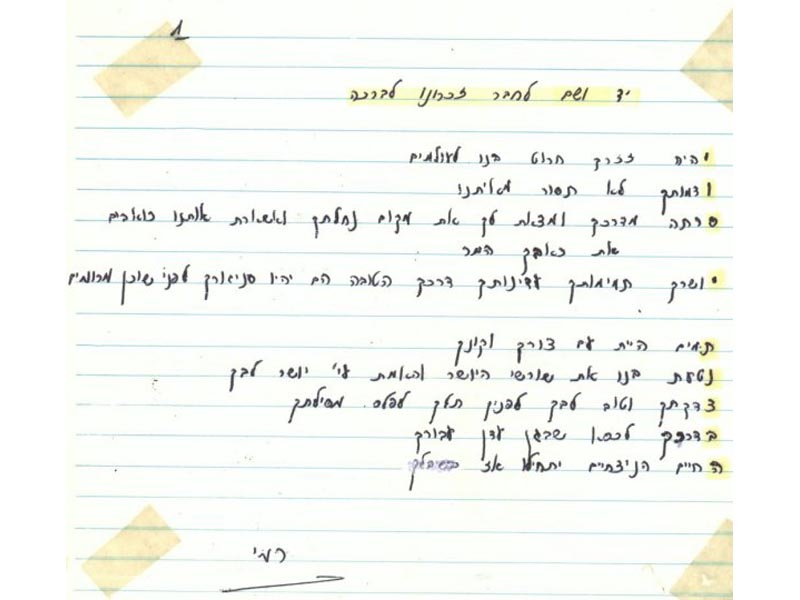 1
יד ושם לחבר זכרונו לברכה
יהיה זכרך חרוט בנו לעולמים
ודמותך לא תסור מאיתנו
סרתה מדרכך ומצאת לך את מקום נחלתך ואשארת אותנו כואבים
את המר
יושרך תמימותך עדינותך דרכך הטובה הם יהיו סניגורך לפני שוכן מרומים
תמים היית עם צורך וקונך
נטעת בנו את שורשי היושר והאמת ע"י יושר לבך
צדקתך וטוב לבך לפניך תלך לפלס מסילתך
בדרכך לכסא שבגן עדן עבורך
החיים הניצחיים יתחילו אז בשבילך